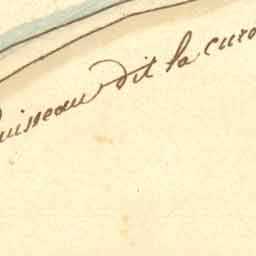 uisseau dit la curo